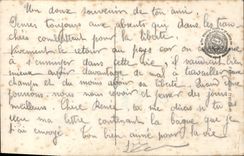 Un doux souvenir de ton ami.
Pensez toujours aux absents qui dans les
combattent pour la liberté.
Vivement le retour au pays car on commence
à s'ennuyer dans cette vie, il vaudrait bien
mieux avoir davantage de mal à travailler aux
champs et du moins avoir sa liberté, disons que
nous nous revoir et passer des jours
meilleurs. Chère Renée, tu me diras si tu as
reçu ma lettre contenant la bague que je
t'ai envoyé. Ton bien aimé pour la vie